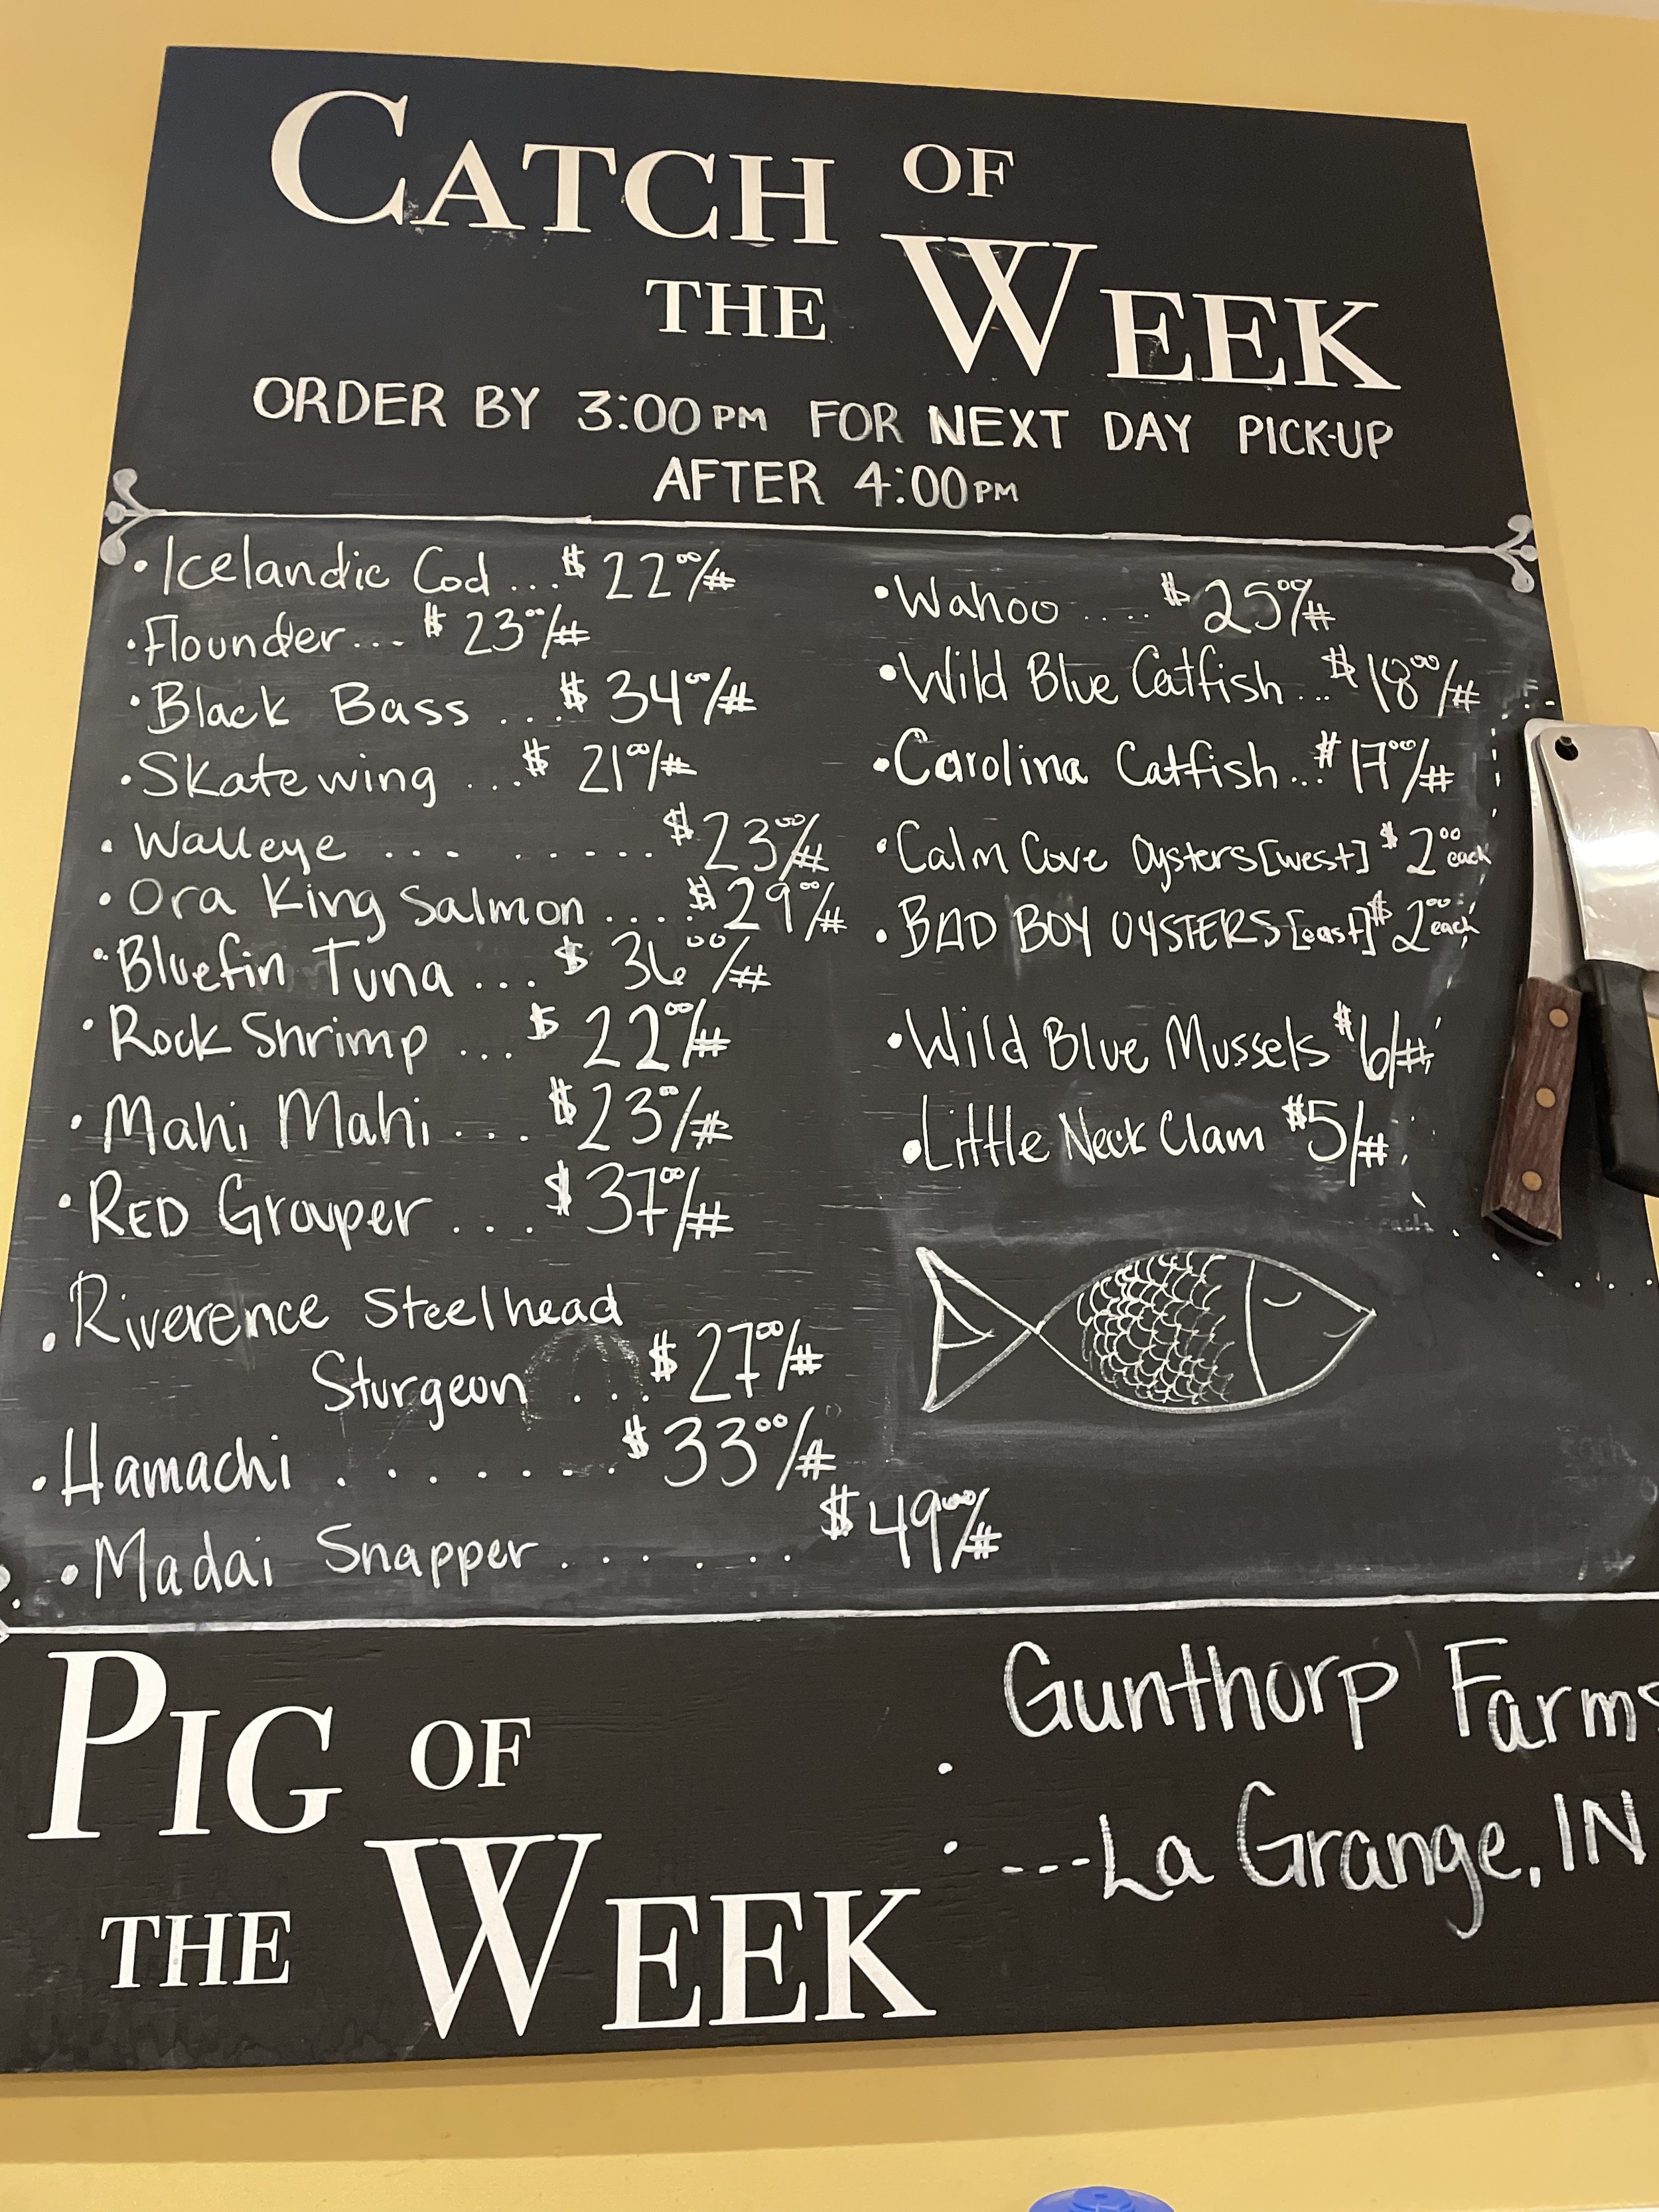 CATCH OF
THE WEEK
ORDER BY 3:00PM FOR NEXT DAY PICK-UP
AFTER 4:00PM
• Icelandic Cod ... $22.00/#
• Flounder ... $23.00/#
• Black Bass ... $34.00/#
• Skate wing ... $21.00/#
• Walleye ... ...... $23.00/#
• Ora King Salmon .... $29.00/#
• Bluefin Tuna ... $36.00/#
• Rock Shrimp ... $22.00/#
• Mahi Mahi ... $23.00/#
• RED Grouper ... $37.00/#
• Riverence Steelhead
Sturgeon ... $27.00/#
• Hamachi ....... $33.00/#
• Madai Snapper ...... $49.00/#
• Wahoo .... $25.00/#
• Wild Blue Catfish ... $18.00/#
• Carolina Catfish ... $17.00/#
• Calm Cove Oysters [west] $2.00 each
• BAD BOY OYSTERS [east] $2.00 each
• Wild Blue Mussels $6/#
• Little Neck Clam $5/#
PIG OF
THE WEEK
: Gunthorp Farms
---La Grange, IN